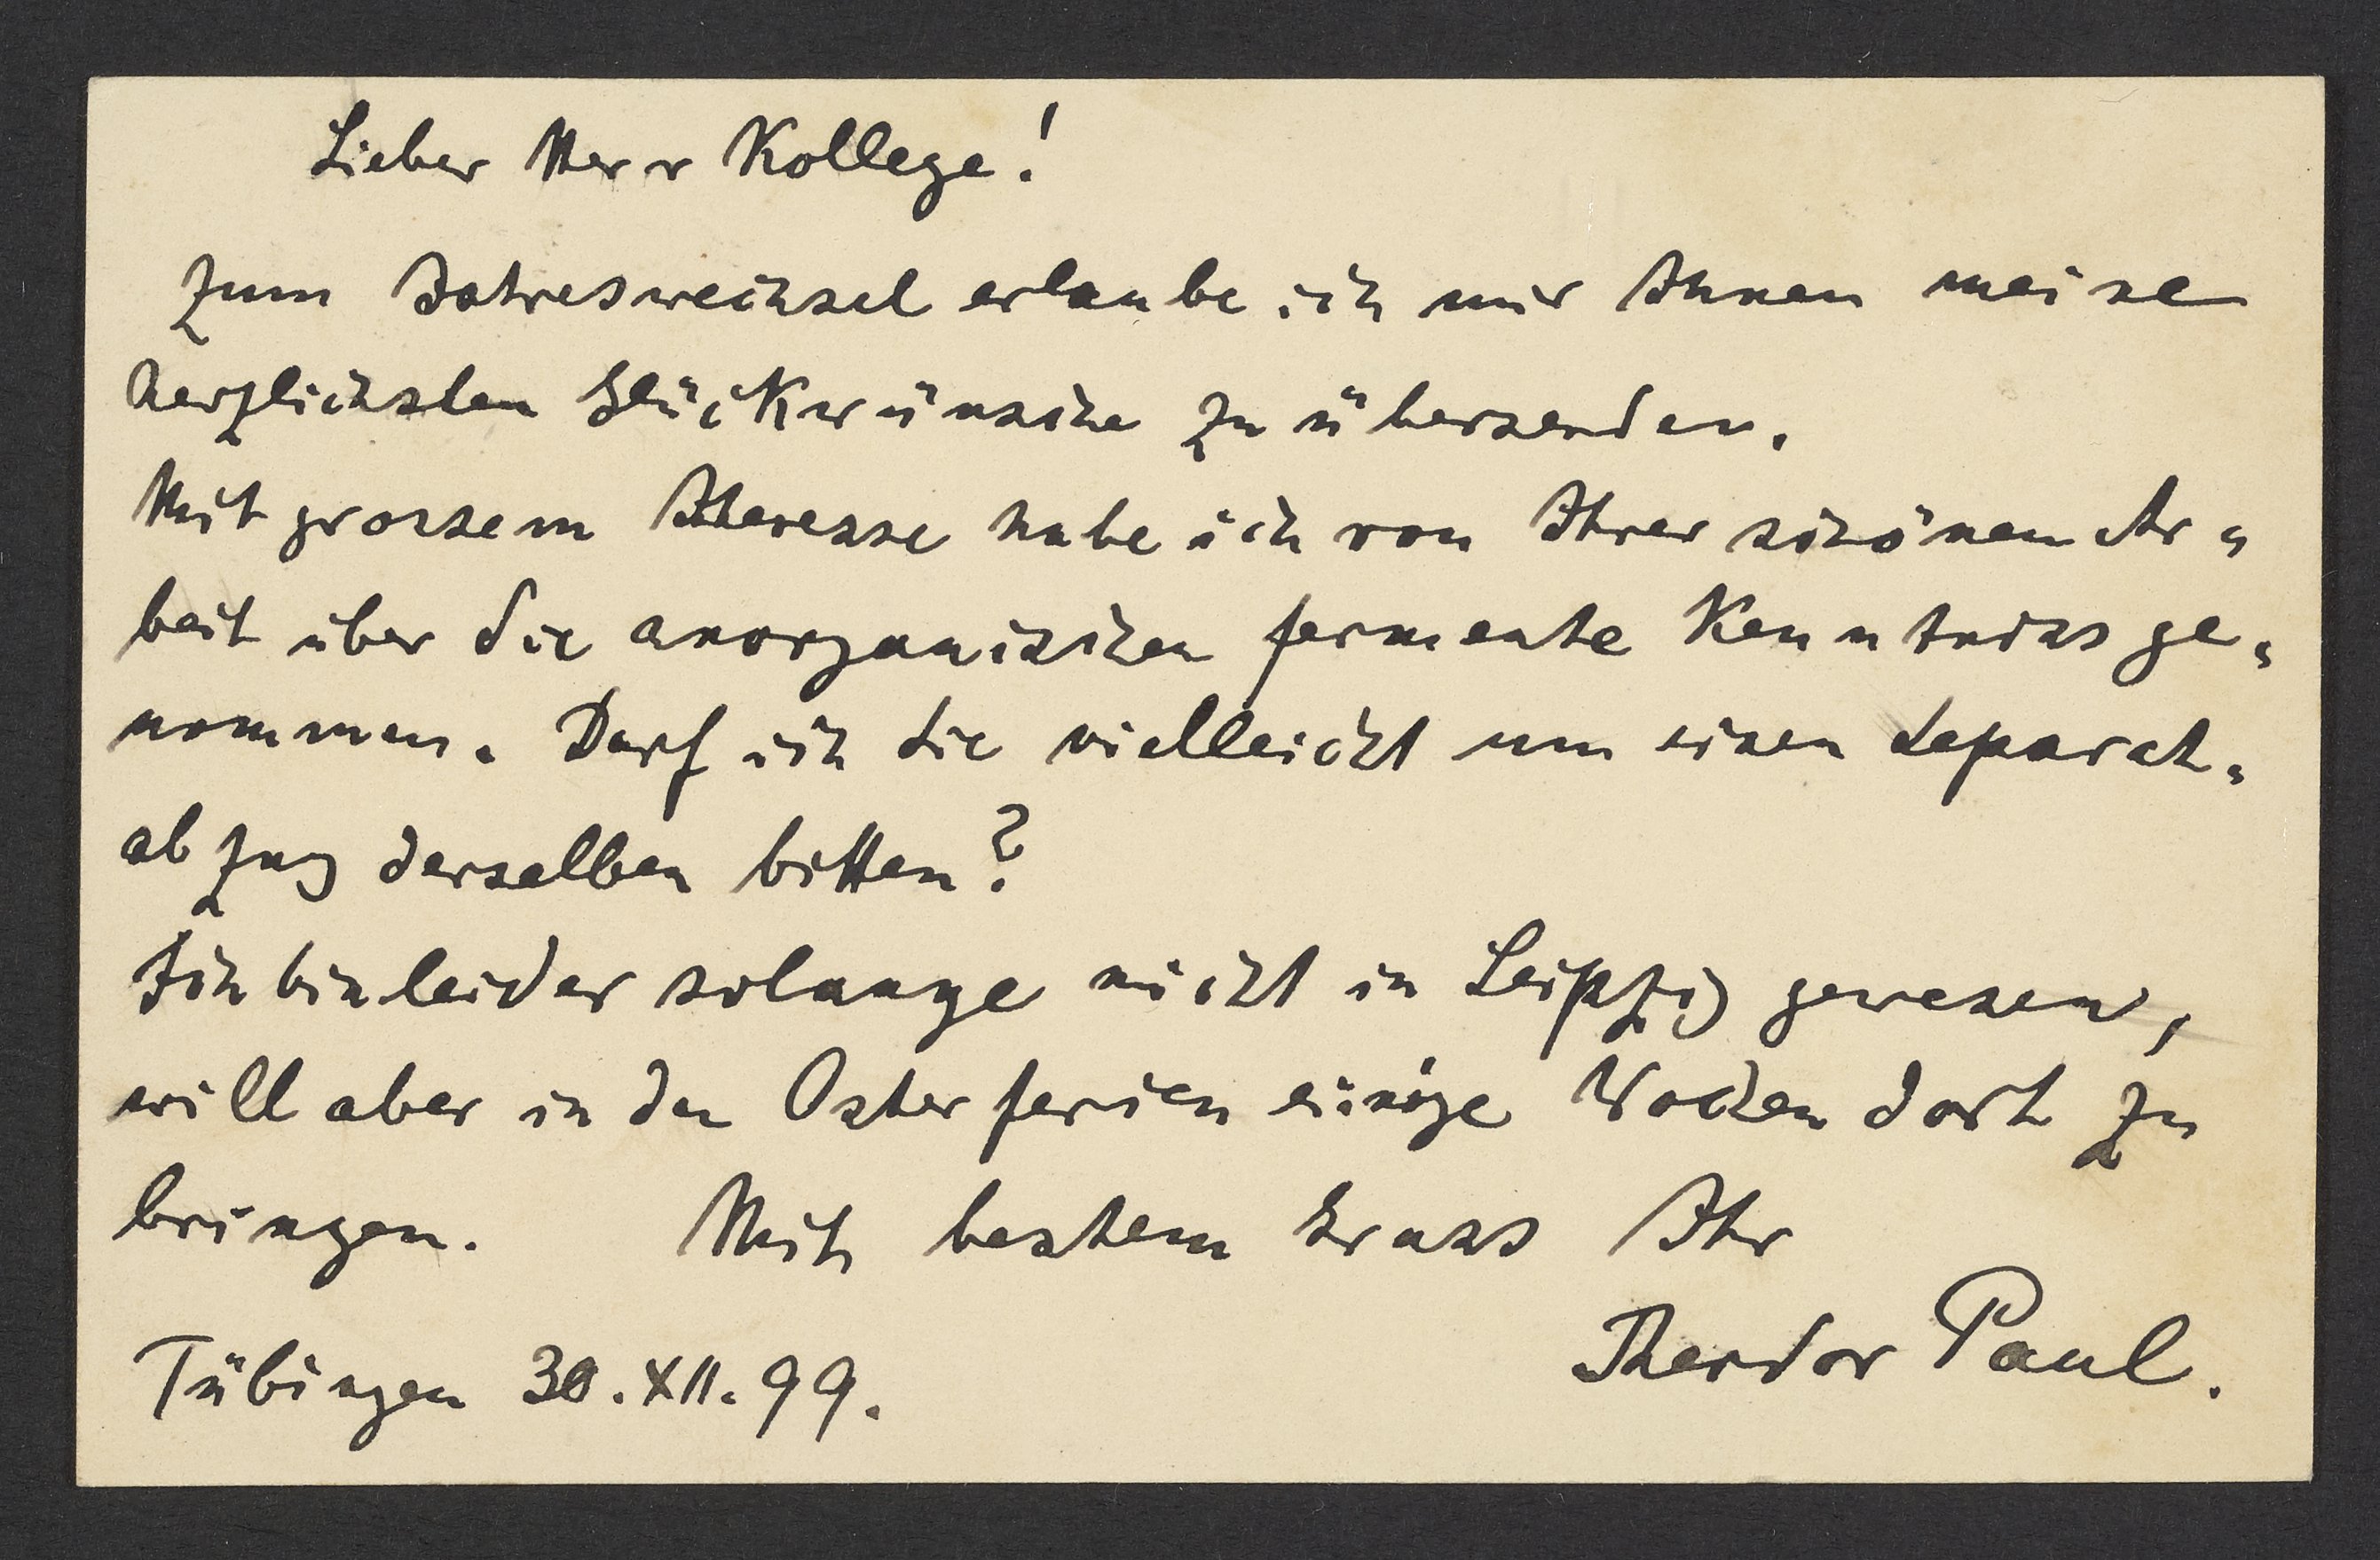 Lieber Herr Kollege!
Zum Jahreswechsel erlaube ich mir Ihnen meine
herzlichsten Glückwünsche zu übersenden.
Mit grossem Interesse habe ich von Ihrer schönen Ar-
beit über die anorganischen Fermente Kenntniss ge-
nommen. Darf ich Sie vielleicht um einen Separat-
abzug derselben bitten?
Ich bin leider solange nicht in Leipzig gewesen,
will aber in den Osterferien einige Wochen dort zu
bringen. Mit bestem Gruss Ihr
Theodor Paul.
Tübingen 30.XII.99.